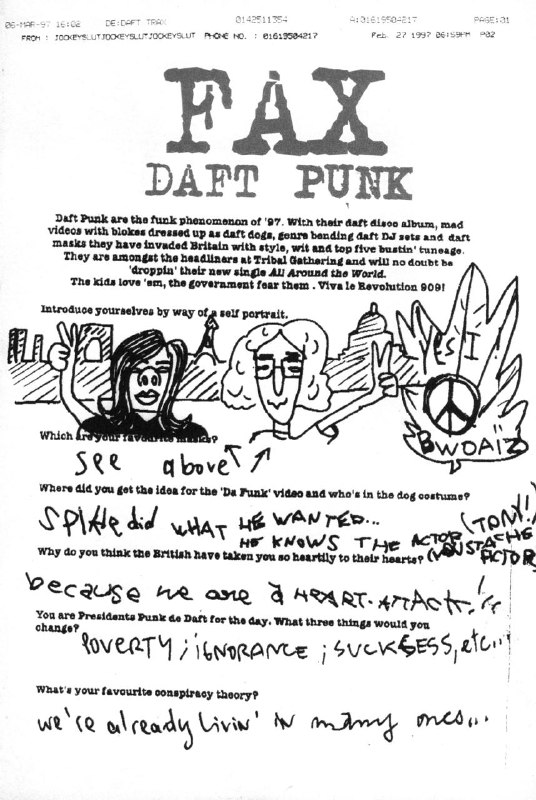 06-MAR-97 16:02 DE:DAFT TRAX 0142511354 A:01619504217 PAGE:01
FROM : JOCKEYSLUTJOCKEYSLUTJOCKEYSLUT PHONE NO. : 01619504217 Feb. 27 1997 06:59PM P02
FAX
DAFT PUNK
Daft Punk are the funk phenomenon of '97. With their daft disco album, mad
videos with blokes dressed up as daft dogs, genre bending daft DJ sets and daft
masks they have invaded Britain with style, wit and top five bustin' tuneage.
They are amongst the headliners at Tribal Gathering and will no doubt be
'droppin' their new single All Around the World.
The kids love 'em, the government fear them . Viva le Revolution 909!
Introduce yourselves by way of a self portrait.
YES I
BWOAÏZ
Which are your favourite masks?
see above
Where did you get the idea for the 'Da Funk' video and who's in the dog costume?
SPIKE did WHAT HE WANTED...
HE KNOWS THE ACTOR (TONY!)
Why do you think the British have taken you so heartily to their hearts?
because we are a HEART-ATTACK!
You are Presidents Punk de Daft for the day. What three things would you
change?
POVERTY ; IGNORANCE ; SUCKSESS, etc...
What's your favourite conspiracy theory?
we're already livin' in many ones...